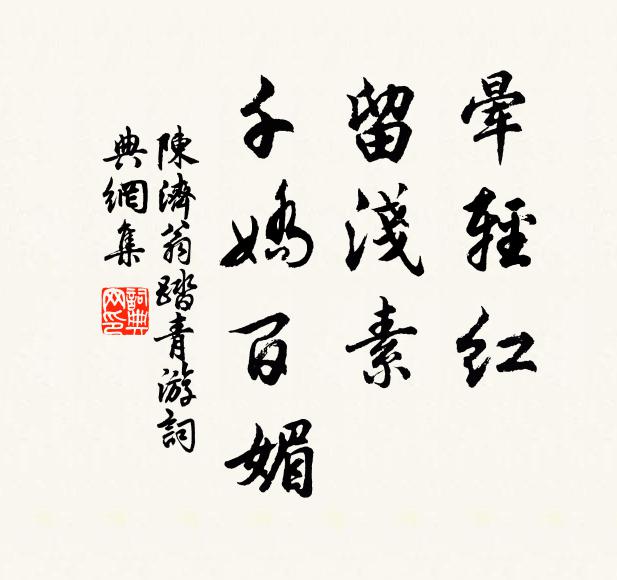 暈輕紅
留淺素
千嬌百媚
陳濟翁踏青游詞
典網集
詞典網印